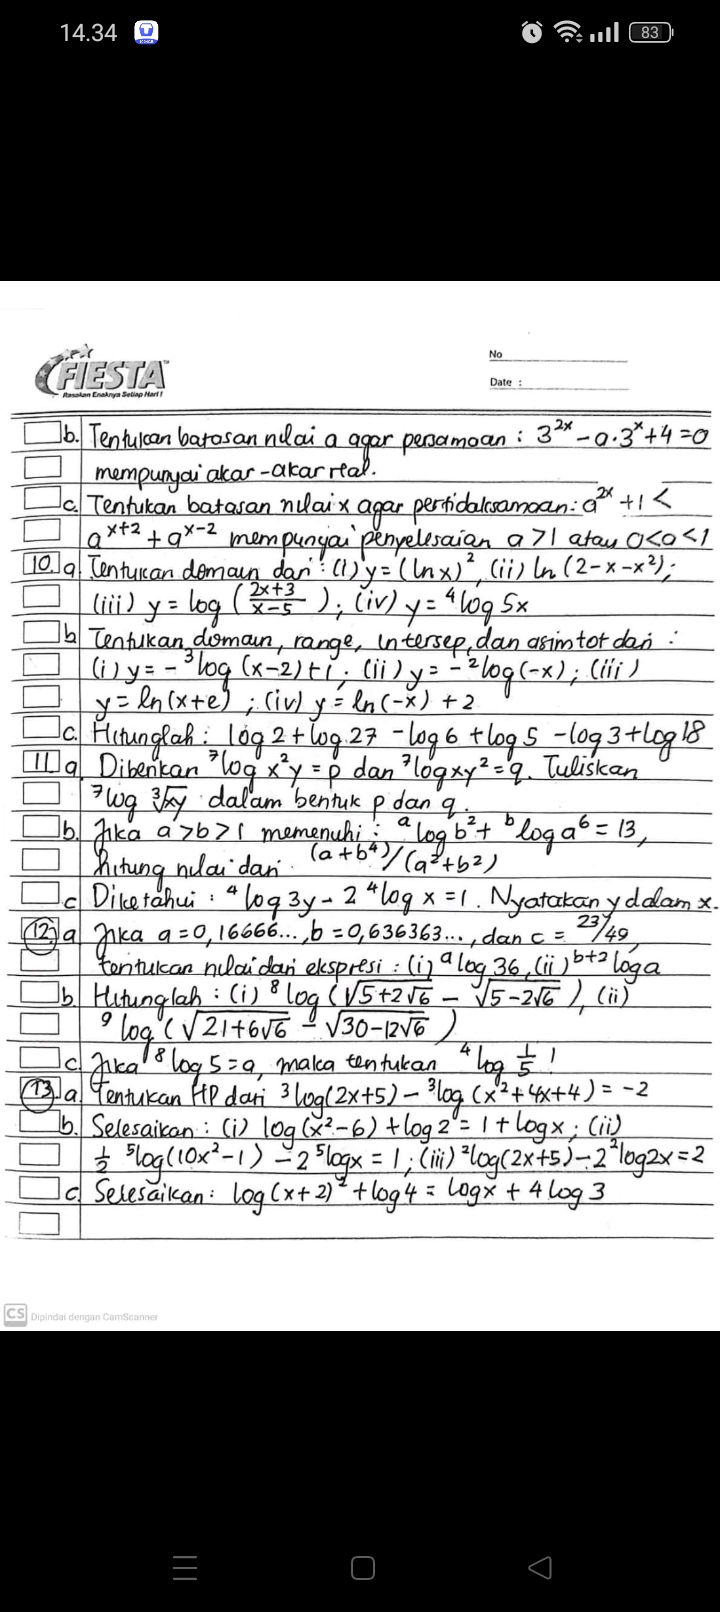 14.34
83
FIESTA
Rasakan Enaknya Setiap Hari !
No
Date :
b. Tentukan batasan nilai a agar persamaan : 3^2x - a·3^x + 4 = 0
mempunyai akar-akar real.
c. Tentukan batasan nilai x agar pertidaksamaan: a^2x + 1 <
a^x+2 + a^x-2 mempunyai penyelesaian a > 1 atau 0<a<1
10. a. Tentukan domain dari : (i) y = (ln x)², (ii) ln (2-x-x²);
(iii) y = log (2x+3/x-5); (iv) y = ⁴log 5x
b Tentukan domain, range, intersep, dan asimtot dari :
(i) y = -³log (x-2)+1; (ii) y = -²log(-x); (iii)
y = ln(x+e) ; (iv) y = ln(-x) + 2
c. Hitunglah : log 2 + log 27 - log 6 + log 5 - log 3 + log 18
11. a. Diberikan ⁷log x²y = p dan ⁷log xy² = q. Tuliskan
⁷log ³√xy dalam bentuk p dan q.
b. Jika a > b > 1 memenuhi : ᵃlog b² + ᵇlog a⁶ = 13,
hitung nilai dari (a+b⁴)/(a²+b²)
c Diketahui : ⁴log 3y - 2 ⁴log x = 1. Nyatakan y dalam x.
12. a Jika a = 0,16666..., b = 0,636363..., dan c = 23/49,
tentukan nilai dari ekspresi : (i) ᵃlog 36, (ii) ᵇ⁺²log a
b. Hitunglah : (i) ⁸log (√5+2√6 - √5-2√6), (ii)
⁹log (√21+6√6 - √30-12√6)
c. Jika ⁸log 5 = a, maka tentukan ⁴log 1/5 !
13. a. Tentukan HP dari ³log(2x+5) - ³log (x²+4x+4) = -2
b. Selesaikan : (i) log (x²-6) + log 2 = 1 + log x; (ii)
½ ⁵log(10x²-1) - 2 ⁵log x = 1; (iii) ²log(2x+5) - 2 ²log 2x = 2
c. Selesaikan : log (x+2)² + log 4 = log x + 4 log 3
CS Dipindai dengan CamScanner